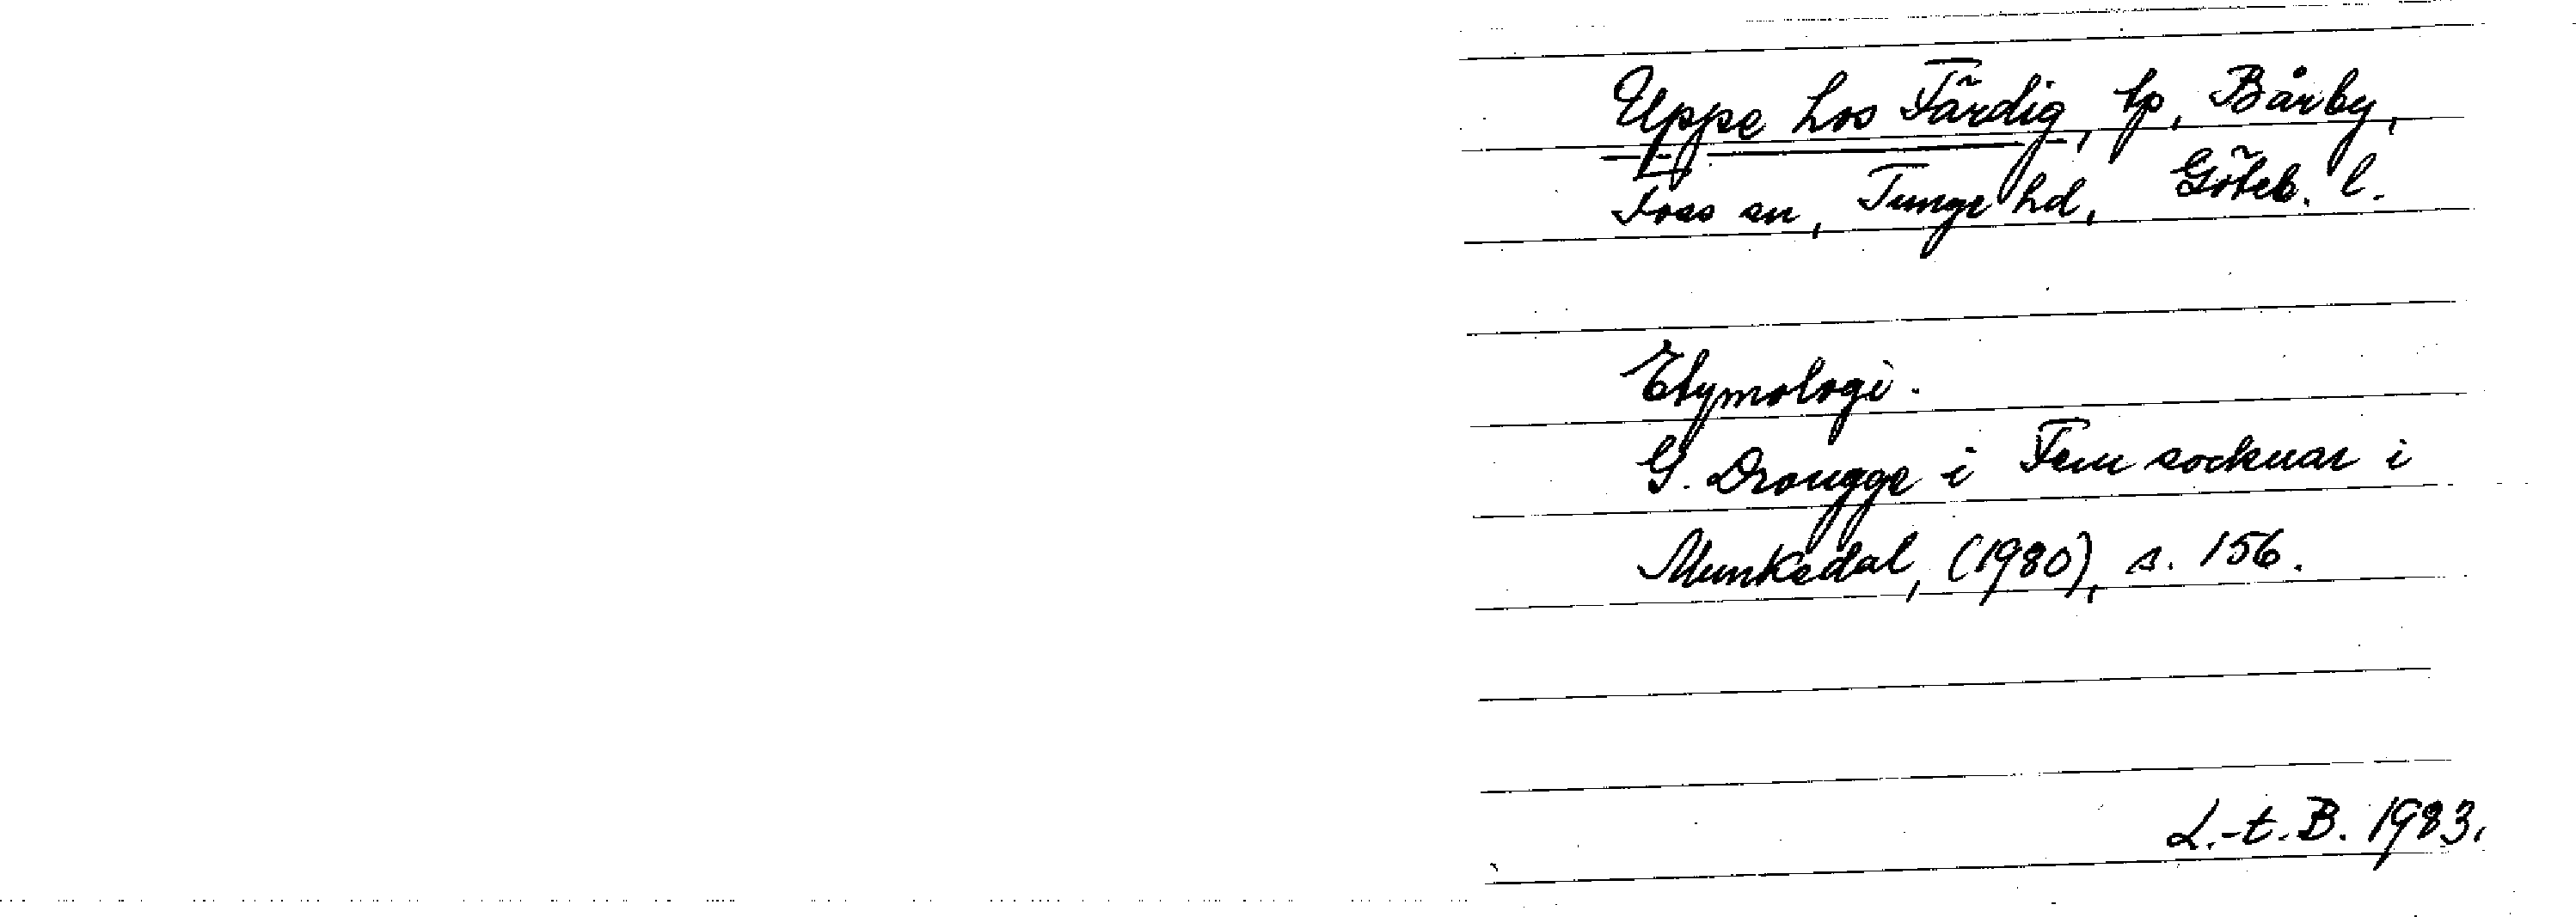 Uppe hos Färdig, tp, Bärby,
Foss sn, Tunge hd, Göteb. l.
Etymologi.
G. Drougge i Fem socknar i
Munkedal, (1980), s. 156.
L.-t. B. 1983.